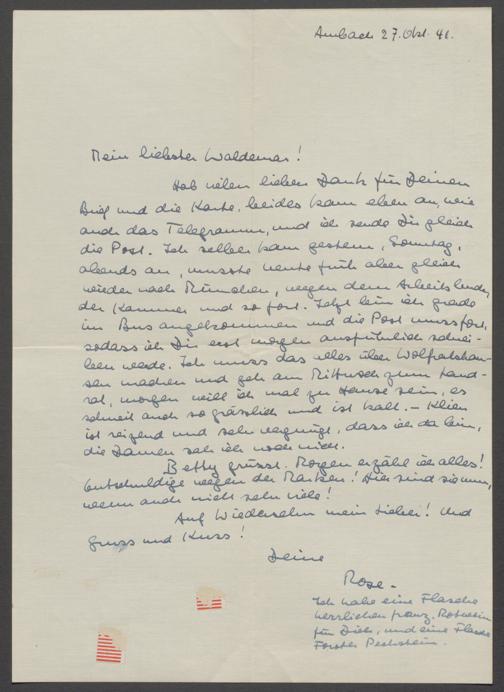 Ambach 27. Okt. 41.
Mein liebster Waldemar!
Hab vielen lieben Dank für Deinen
Brief und die Karte, beides kam eben an, wie
auch das Telegramm, und ich sende Dir gleich
die Post. Ich selber kam gestern, Sonntag,
abends an, musste heute früh aber gleich
wieder nach München, wegen dem
der Kammer und so fort. Jetzt bin ich grade
im Bus angekommen und die Post muss fort,
sodass ich Dir erst morgen ausführlich schrei-
ben werde. Ich muss das alles über Wolfratshau-
sen machen und geh am Mittwoch zum Land-
rat, morgen will ich mal zu Hause sein, es
schneit auch so grässlich und ist kalt. –
ist reizend und sehr vergnügt, dass ich da bin,
die Damen sah ich noch nicht.
Betty grüsst. Morgen erzähl ich alles!
Entschuldige wegen der Marken! Hier sind sie nun,
wenn auch nicht sehr viele!
Auf Wiedersehn mein Lieber! Und
Gruss und Kuss!
Deine
Rose –
Ich habe eine Flasche
herrlichen franz. Rotwein
für Dich, und eine Flasche
Forster Pechstein.